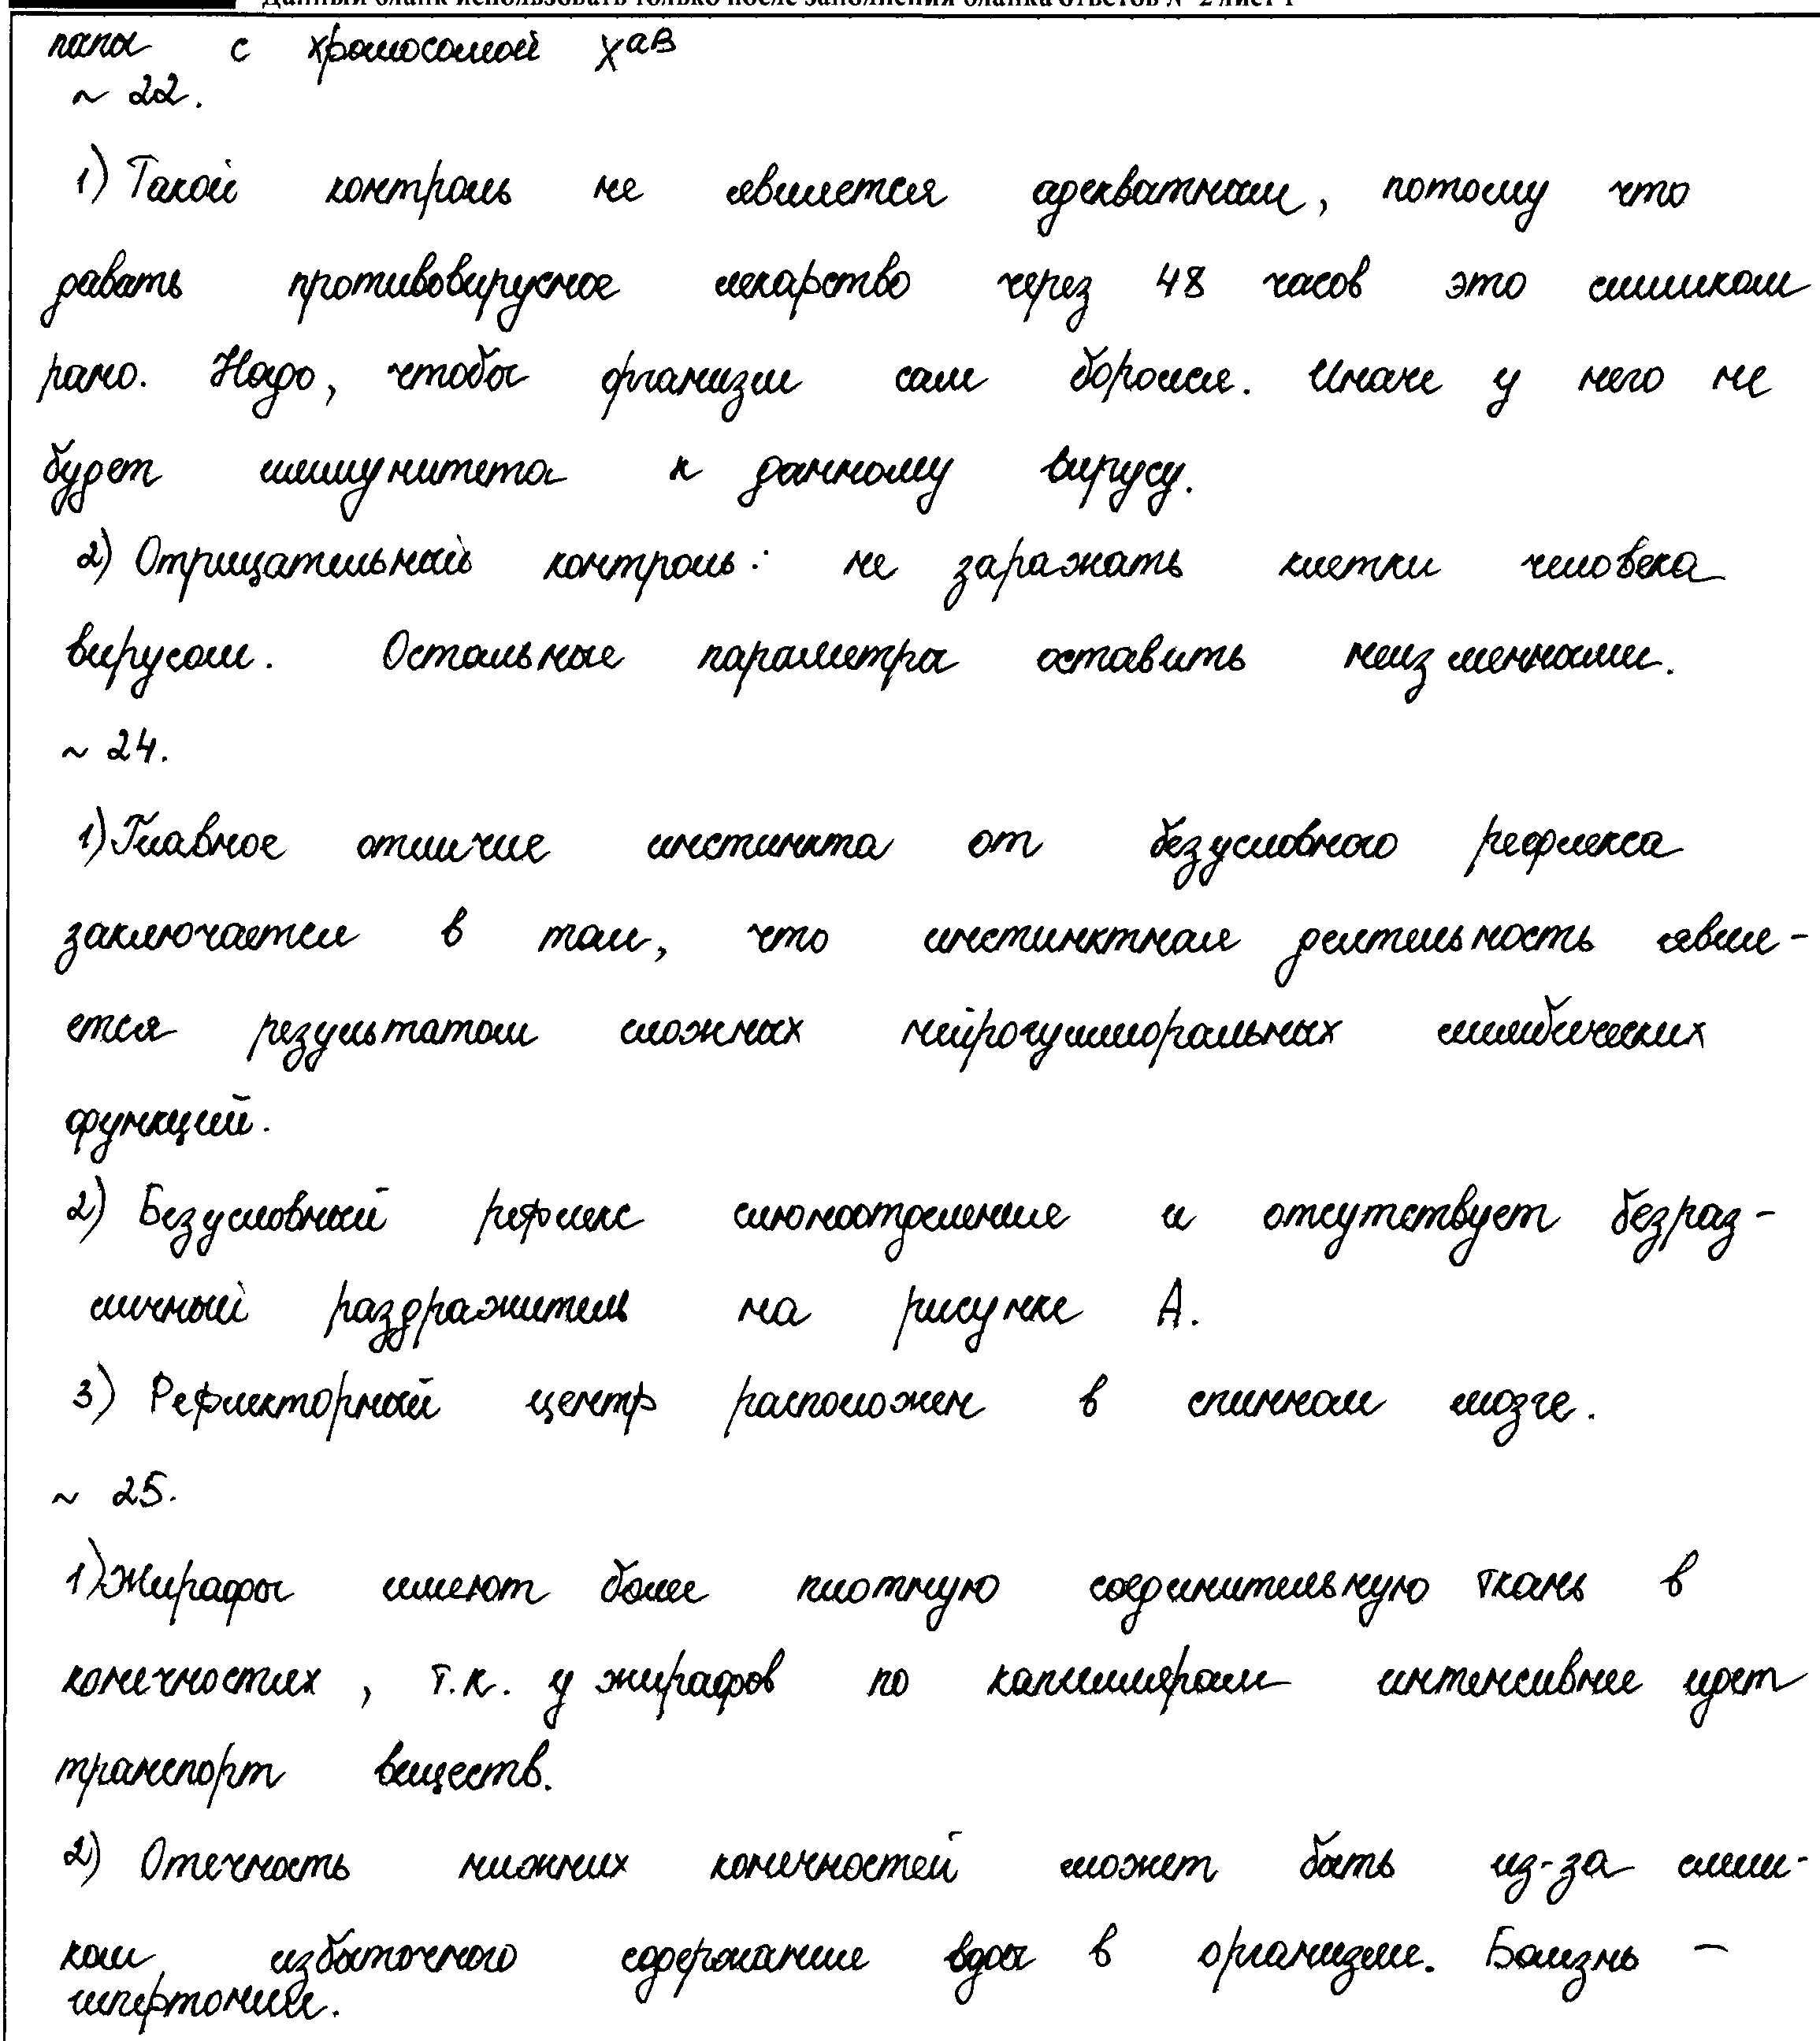 Данный бланк использовать только после заполнения бланка ответов № 2 лист 1
папы с хромосомой X^aB
~ 22.
1) Такой контроль не является адекватным, потому что
давать противовирусное лекарство через 48 часов это слишком
рано. Надо, чтобы организм сам боролся. Иначе у него не
будет иммунитета к данному вирусу.
2) Отрицательный контроль: не заражать клетки человека
вирусом. Остальные параметры оставить неизменными.
~ 24.
1) Главное отличие инстинкта от безусловного рефлекса
заключается в том, что инстинктная деятельность явля-
ется результатом сложных нейрогуммиоральных
функций.
2) Безусловный рефлекс слюноотделение и отсутствует безраз-
личный раздражитель на рисунке А.
3) Рефлекторный центр расположен в спинном мозге.
~ 25.
1) Жирафы имеют более плотную соединительную ткань в
конечностях, т.к. у жирафов по капиллярам интенсивнее идет
транспорт веществ.
2) Отечность нижних конечностей может быть из-за слиш-
ком избыточного содержание воды в организме. Болезнь –
гипертония.